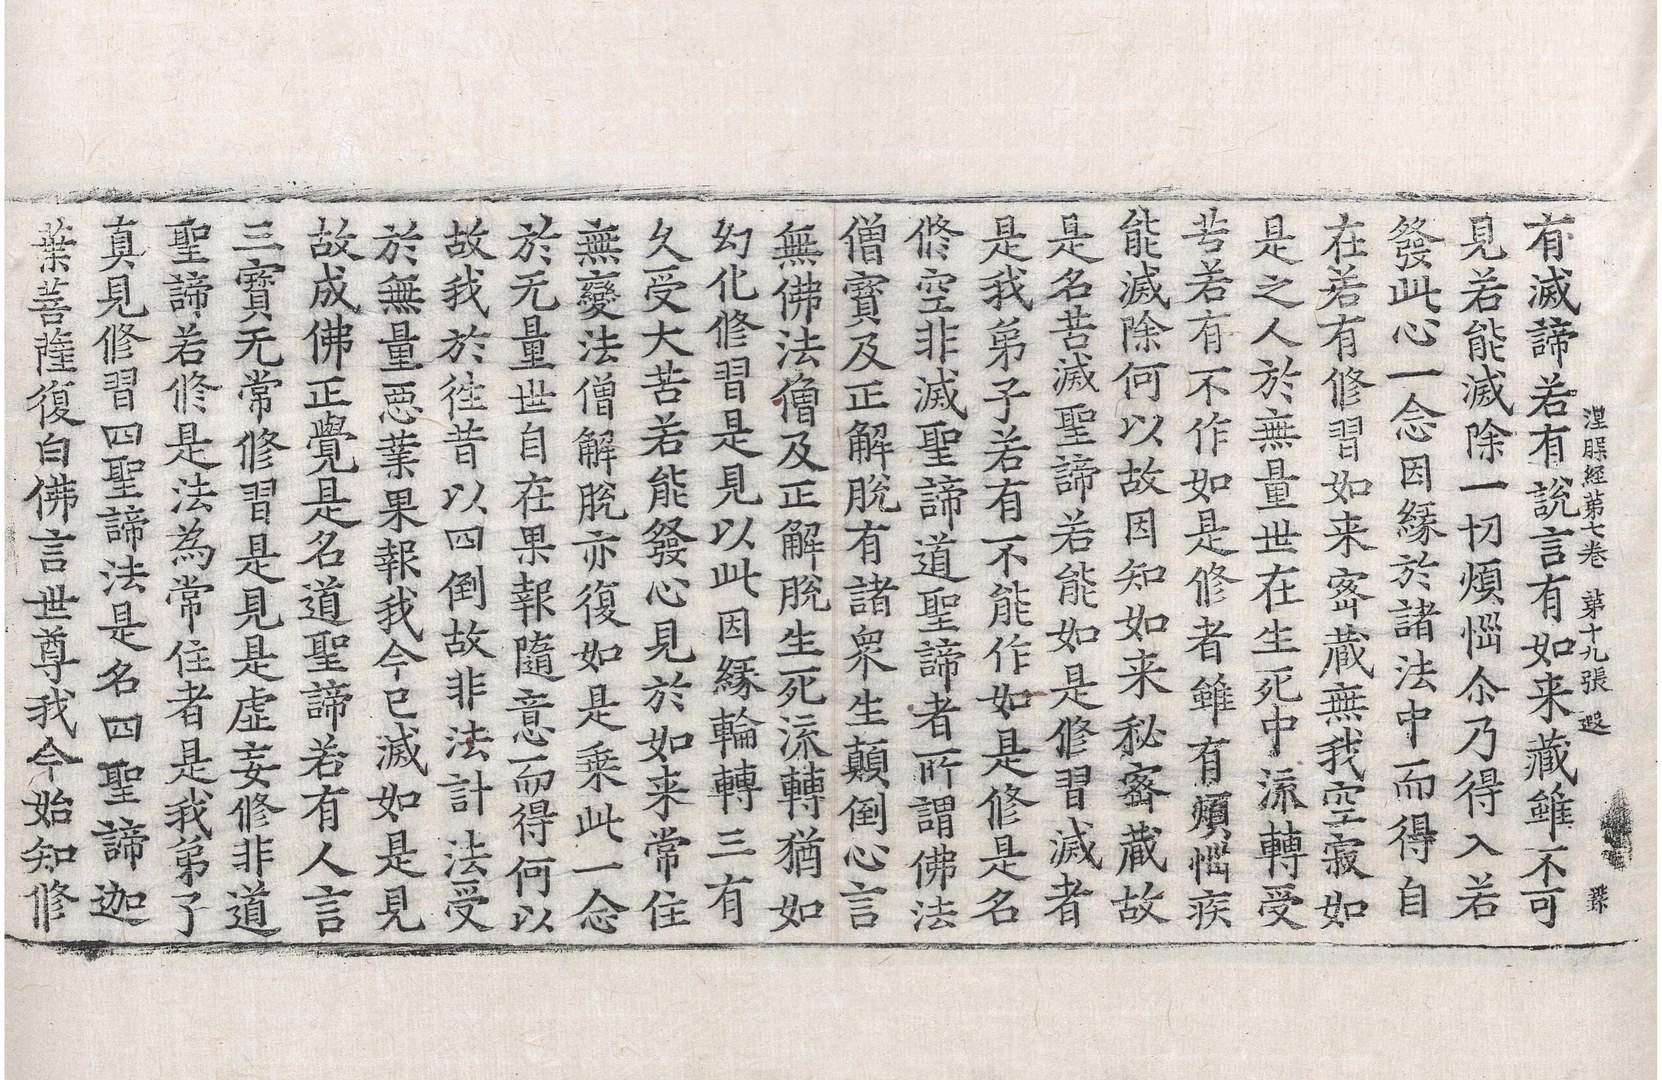 涅槃經第七卷 第十九張 遐
有滅諦若有說言有如来藏雖不可
見若能滅除一切煩惱尒乃得入若
發此心一念因緣於諸法中而得自
在若有修習如来宻藏無我空寂如
是之人於無量世在生死中流轉受
苦若有不作如是修者雖有煩惱疾
能滅除何以故因知如来秘宻藏故
是名苦滅聖諦若能如是修習滅者
是我弟子若有不能作如是修是名
修空非滅聖諦道聖諦者所謂佛法
僧寶及正解脫有諸衆生顛倒心言
無佛法僧及正解脫生死流轉猶如
幻化修習是見以此因緣輪轉三有
久受大苦若能發心見於如来常住
無變法僧解脫亦復如是乘此一念
於无量世自在果報隨意而得何以
故我於徃昔以四倒故非法計法受
於無量惡業果報我今已滅如是見
故成佛正覺是名道聖諦若有人言
三寶无常修習是見是虛妄修非道
聖諦若修是法為常住者是我弟子
真見修習四聖諦法是名四聖諦迦
葉菩薩復白佛言世尊我今始知修